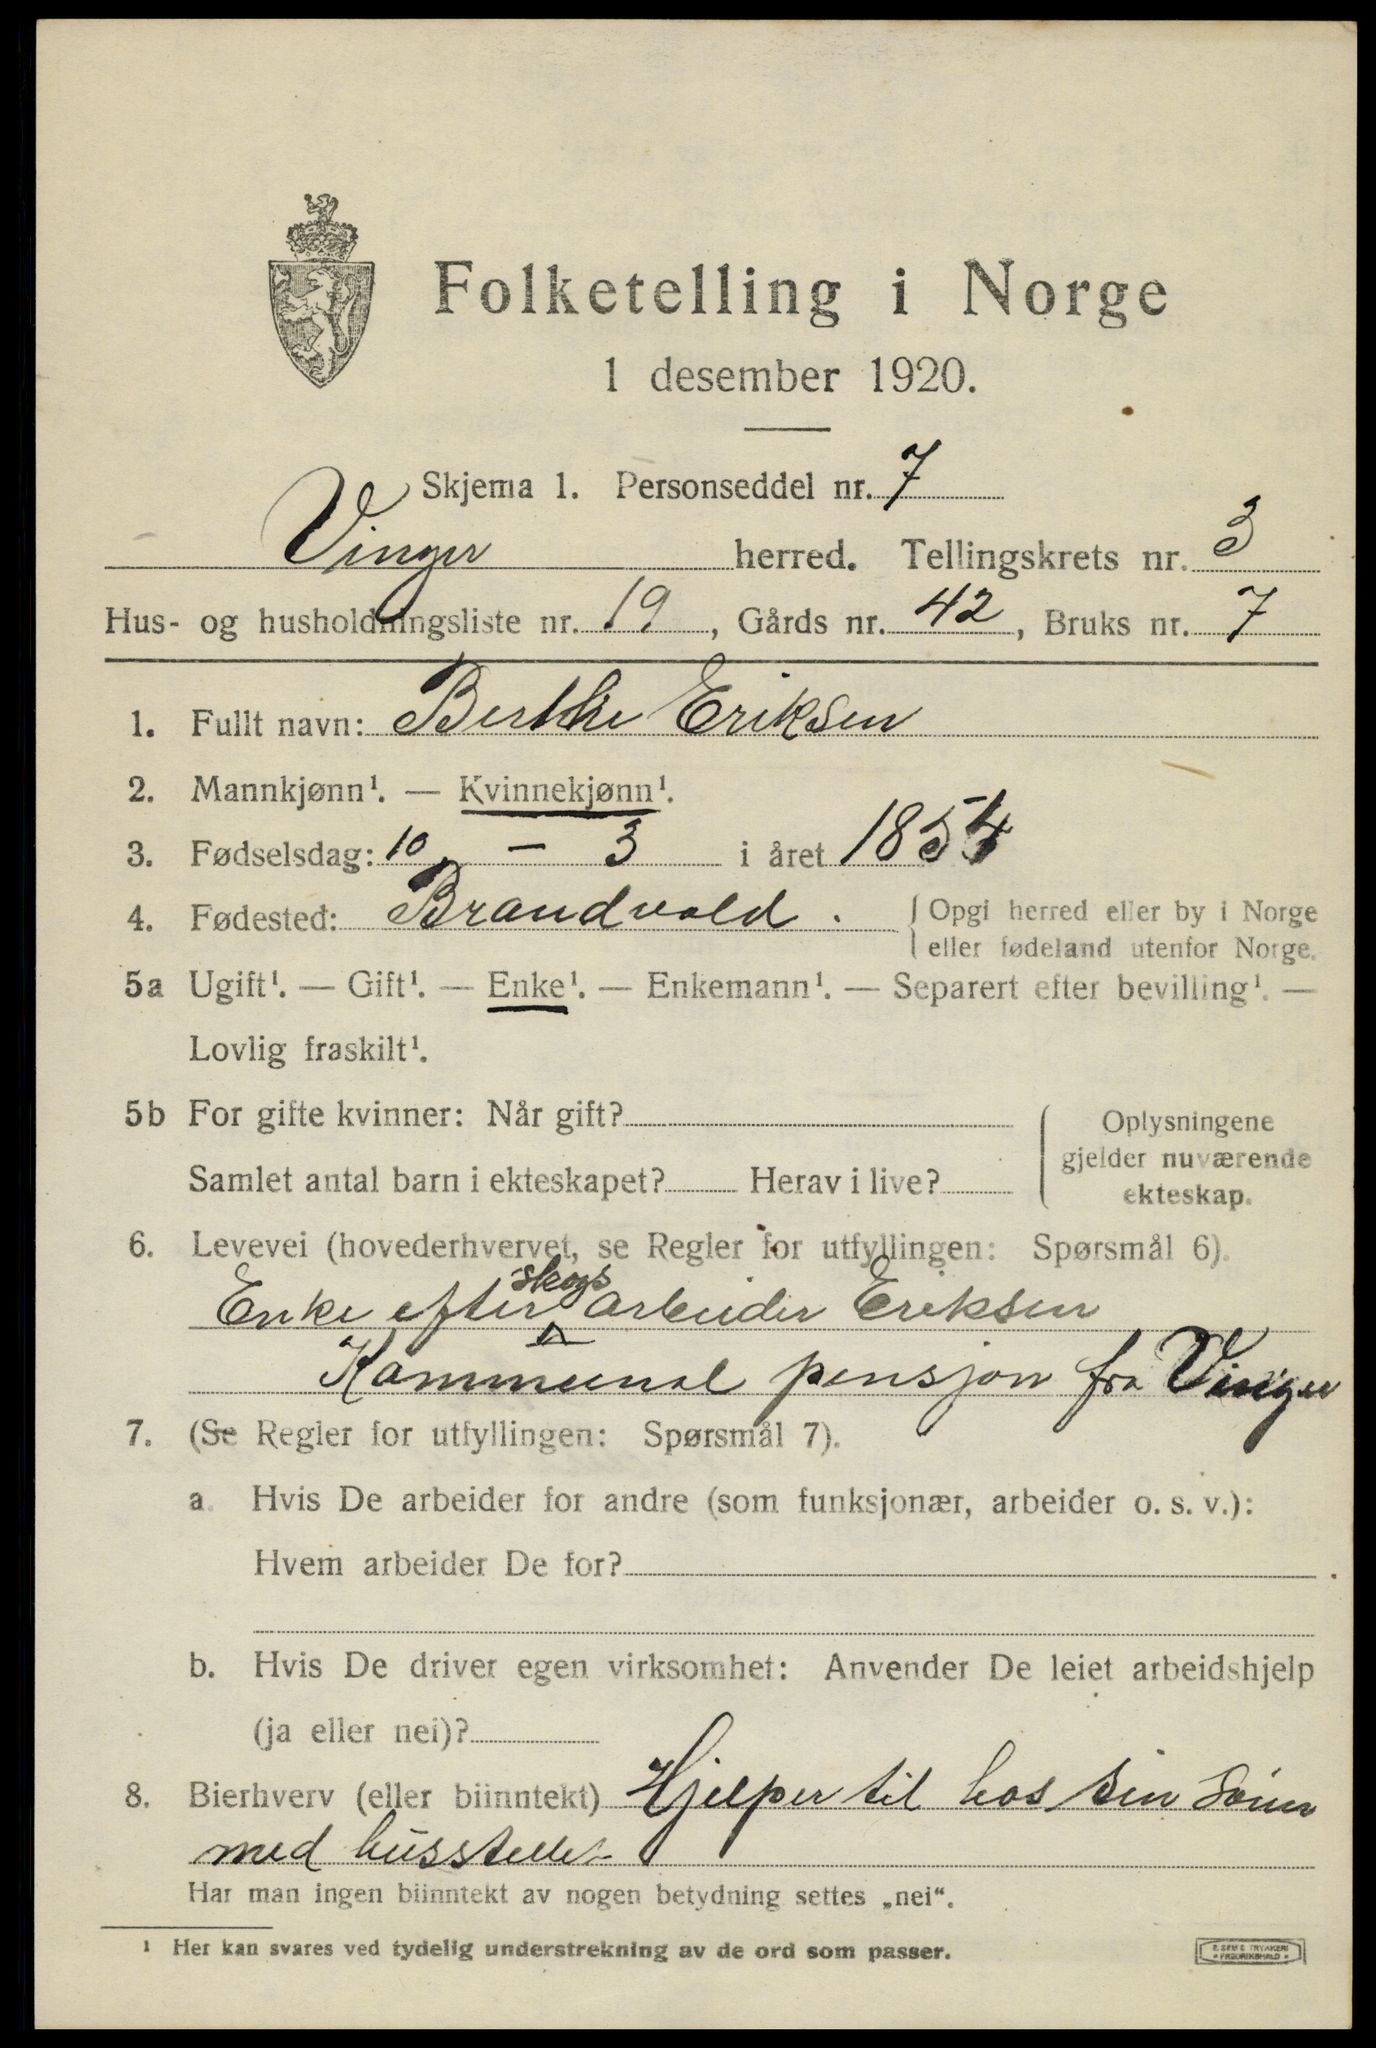 Folketelling i Norge
1 desember 1920.
Skjema 1. Personseddel nr. 7
Vinger herred. Tellingskrets nr. 3
Hus- og husholdningsliste nr. 19, Gårds nr. 42, Bruks nr. 7
1. Fullt navn: Berthe Eriksen
2. Mannkjønn¹. — Kvinnekjønn¹.
3. Fødselsdag: 10. – 3 i året 1854
4. Fødested: Brandvold. Opgi herred eller by i Norge
eller fødeland utenfor Norge.
5a Ugift¹. — Gift¹. — Enke¹. — Enkemann¹. — Separert efter bevilling¹. —
Lovlig fraskilt¹.
5b For gifte kvinner: Når gift? Oplysningene
gjelder nuværende
Samlet antal barn i ekteskapet? Herav i live?
ekteskap.
6. Levevei (hovederhvervet, se Regler for utfyllingen: Spørsmål 6).
Enke efter skogsarbeider Eriksen
Kommunal pensjon fra Vinger
7. (Se Regler for utfyllingen: Spørsmål 7).
a. Hvis De arbeider for andre (som funksjonær, arbeider o. s. v.):
Hvem arbeider De for?
b. Hvis De driver egen virksomhet: Anvender De leiet arbeidshjelp
(ja eller nei)?
8. Bierhverv (eller biinntekt) Hjelper til hos sin Sønn
med husstellet
Har man ingen biinntekt av nogen betydning settes „nei“.
¹ Her kan svares ved tydelig understrekning av de ord som passer.
E. SEM'S TRYKKERI
FREDRIKSHALD